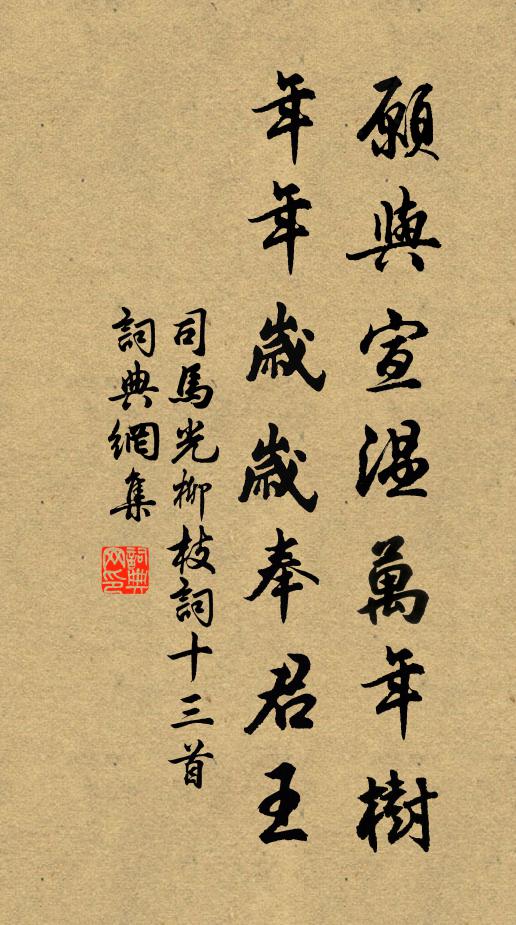 願與宣溫萬年樹
年年歲歲奉君王
司馬光柳枝詞十三首
詞典網集
詞典网印